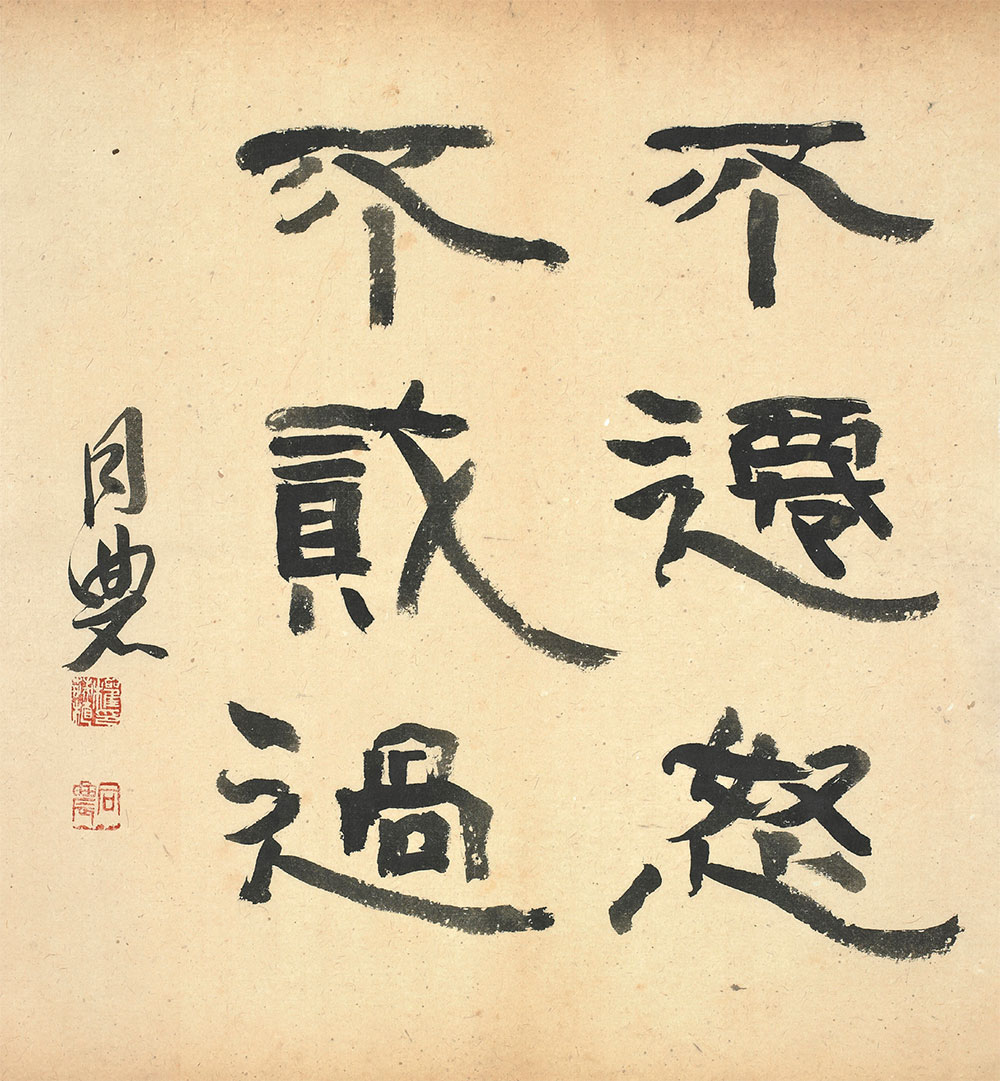 不遷怒
不貳過
同農
同農